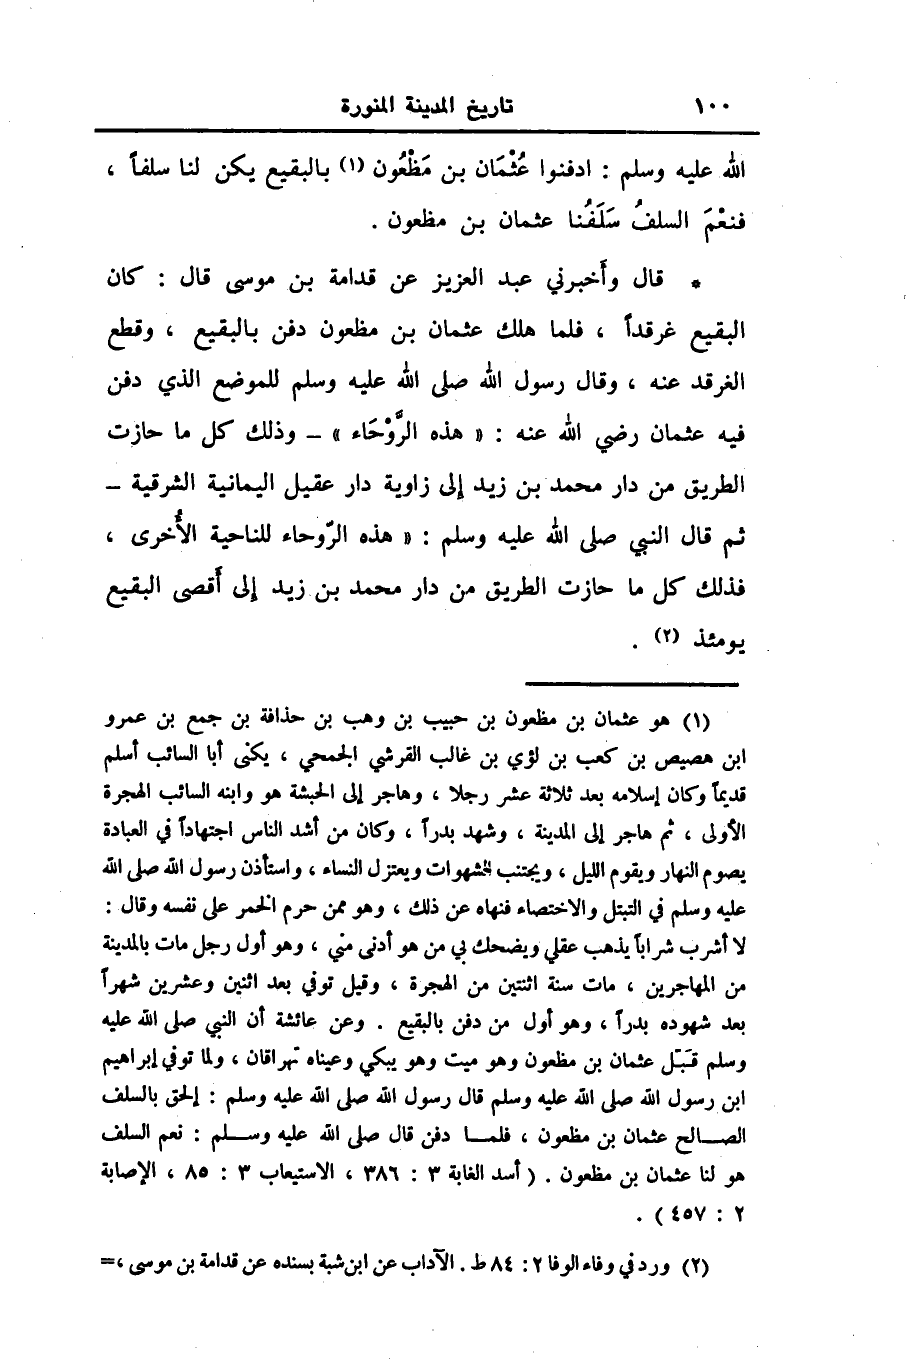 ١٠٠ تاريخ المدينة المنورة
الله عليه وسلم : ادفنوا عُثْمَان بن مَظْعُون (١) بالبقيع يكن لنا سلفاً ،
فنعْمَ السلفُ سَلَفُنا عثمان بن مظعون .
* قال وأَخبرني عبد العزيز عن قدامة بن موسى قال : كان
البقيع غرقداً ، فلما هلك عثمان بن مظعون دفن بالبقيع ، وقطع
الغرقد عنه ، وقال رسول الله صلى الله عليه وسلم للموضع الذي دفن
فيه عثمان رضي الله عنه : « هذه الرَّوْحَاء » – وذلك كل ما حازت
الطريق من دار محمد بن زيد إلى زاوية دار عقيل اليمانية الشرقية –
ثم قال النبي صلى الله عليه وسلم : « هذه الرّوحاء للناحية الأُخرى ،
فذلك كل ما حازت الطريق من دار محمد بن زيد إلى أَقصى البقيع
يومئذ (٢) .
(١) هو عثمان بن مظعون بن حبيب بن وهب بن حذافة بن جمع بن عمرو
ابن هصيص بن كعب بن لؤي بن غالب القرشي الجمحي ، يكنى أبا السائب أسلم
قديماً وكان إسلامه بعد ثلاثة عشر رجلا ، وهاجر إلى الحبشة هو وابنه السائب الهجرة
الأولى ، ثم هاجر إلى المدينة ، وشهد بدراً ، وكان من أشد الناس اجتهاداً في العبادة
يصوم النهار ويقوم الليل ، ويجتنب الشهوات ويعتزل النساء ، واستأذن رسول الله صلى الله
عليه وسلم في التبتل والاختصاء فنهاه عن ذلك ، وهو ممن حرم الخمر على نفسه وقال :
لا أشرب شراباً يذهب عقلي ويضحك بي من هو أدنى مني ، وهو أول رجل مات بالمدينة
من المهاجرين ، مات سنة اثنتين من الهجرة ، وقيل توفي بعد اثنين وعشرين شهراً
بعد شهوده بدراً ، وهو أول من دفن بالبقيع . وعن عائشة أن النبي صلى الله عليه
وسلم قبّل عثمان بن مظعون وهو ميت وهو يبكي وعيناه تهراقان ، ولما توفي إبراهيم
ابن رسول الله صلى الله عليه وسلم قال رسول الله صلى الله عليه وسلم : إلحق بالسلف
الصالح عثمان بن مظعون ، فلما دفن قال صلى الله عليه وسلم : نعم السلف
هو لنا عثمان بن مظعون . ( أسد الغابة ٣ : ٣٨٦ ، الاستيعاب ٣ : ٨٥ ، الإصابة
٢ : ٤٥٧ ) .
(٢) ورد في وفاء الوفا ٢ : ٨٤ ط . الآداب عن ابن شبة بسنده عن قدامة بن موسى ،=